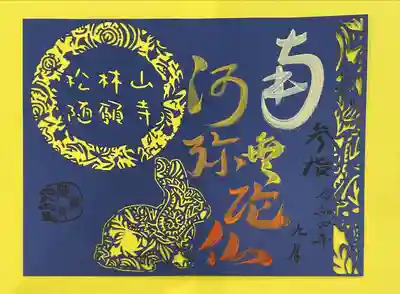 南無
阿弥
陀仏
松林山
弘願寺
参拝
令和四年
九月